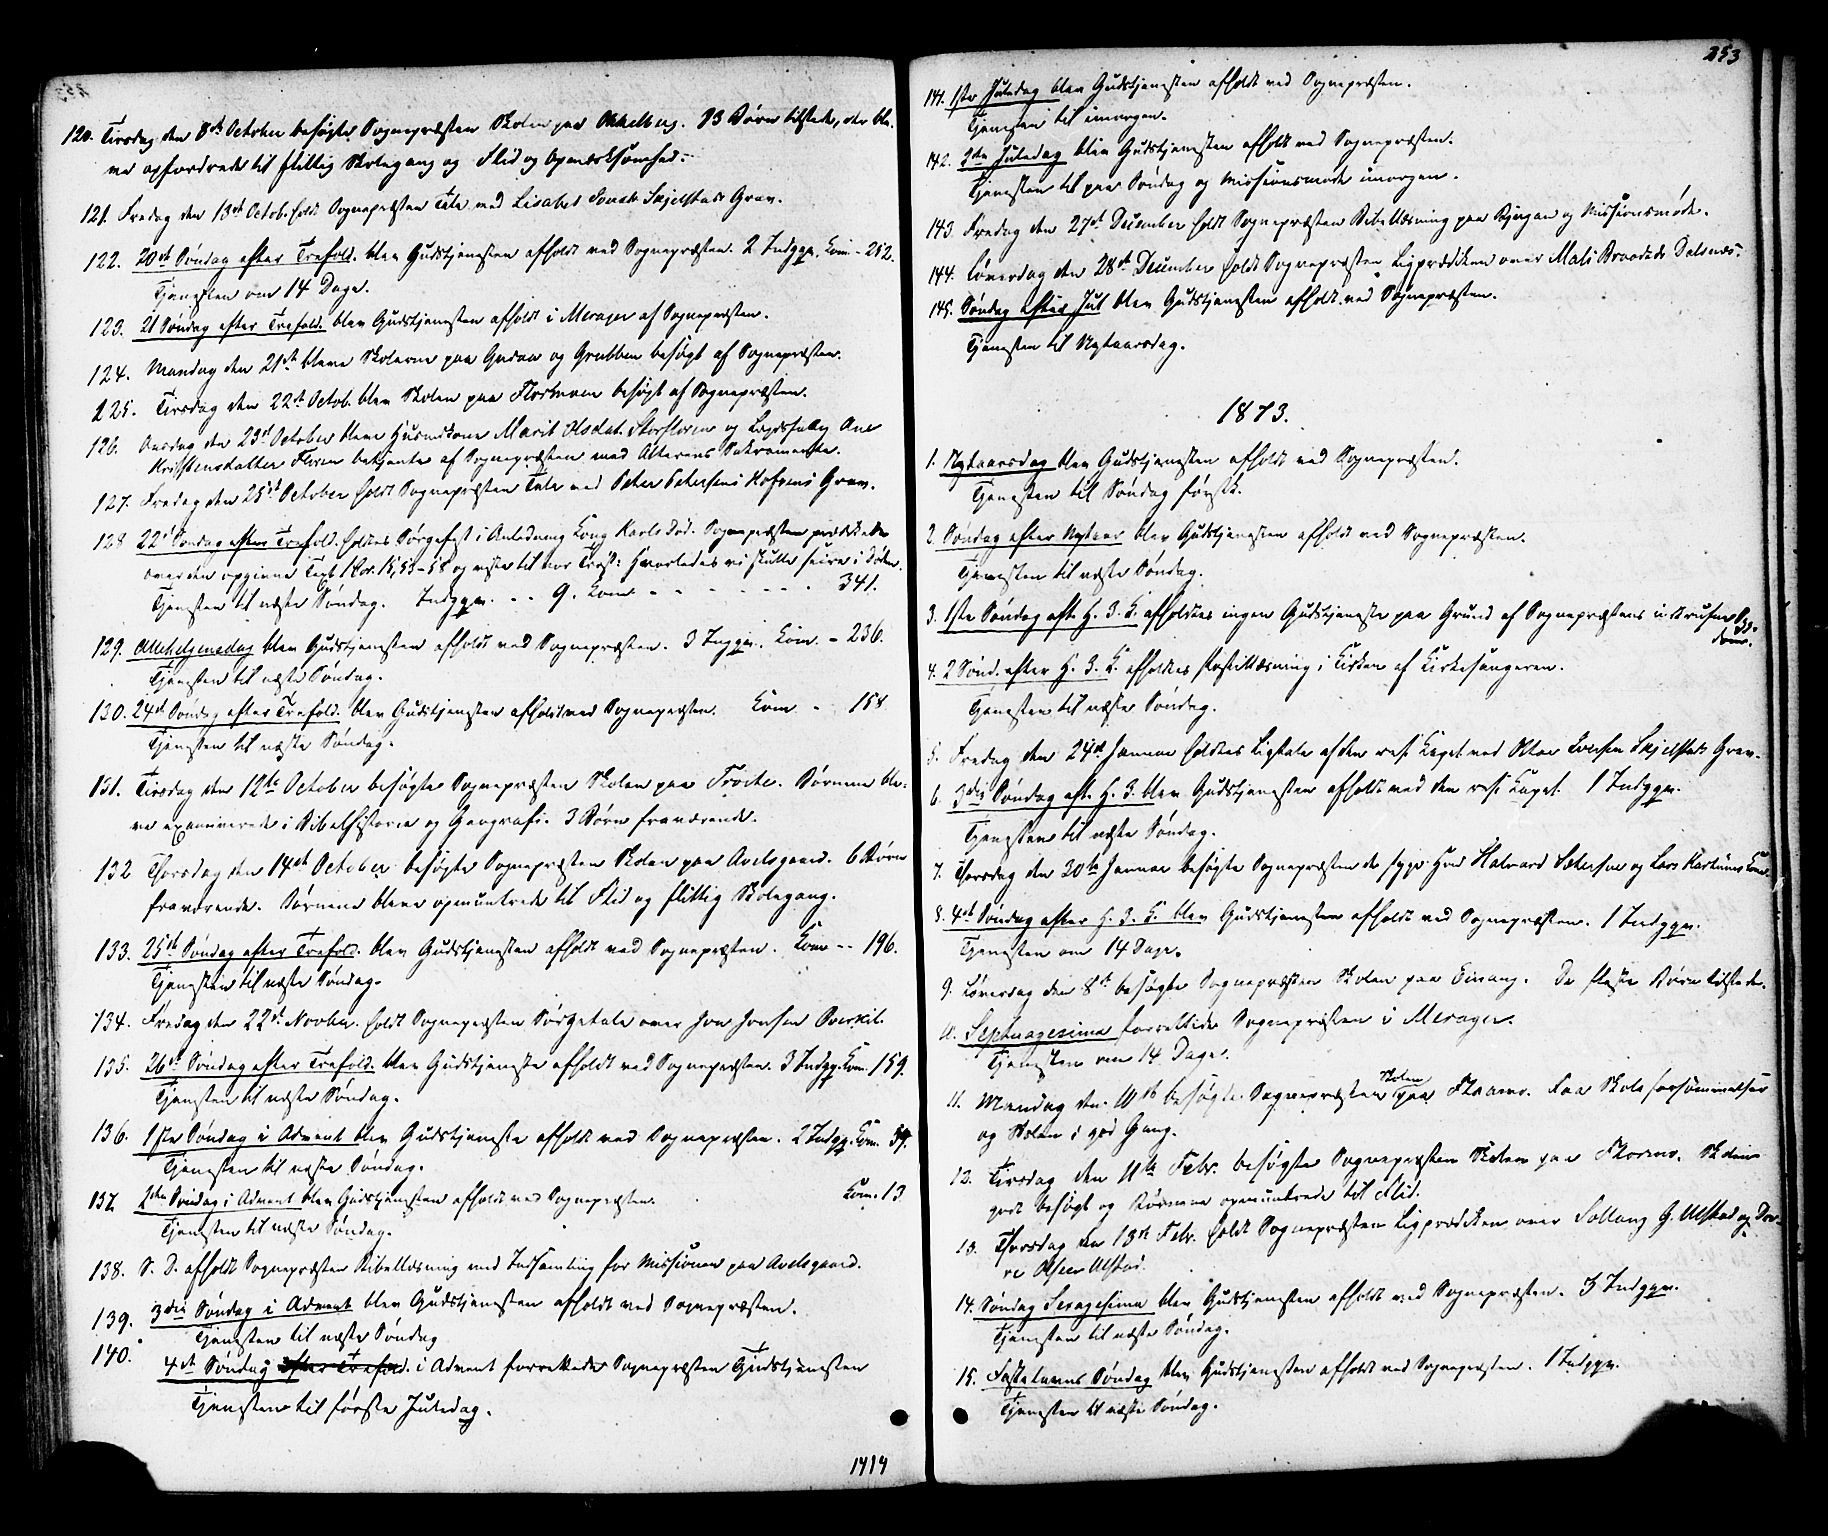 120. Tirsdag den 8de October besøgte Sognepræsten Skolen paa Okkelberg. 13 Børn tilstede, der ble-
ve opfordrede til flittig Skolegang og Flid og Opmærksomhed.
121. Fredag den 13de Octob. holdt Sognepræsten Tale ved Lisabet Skjelstads Grav.
122. 20de Søndag efter Trefold. blev Gudstjenesten afholdt ved Sognepræsten. 2 Indggn. Kom - 252.
Tjenesten om 14 Dage.
123. 21 Søndag efter Trefold. blev Gudstjenesten afholdt i Merager af Sognepræsten.
124. Mandag den 21de bleve Skolerne paa Gudaa og Grubben besøgt af Sognepræsten.
125. Tirsdag den 22de Octob. blev Skolen paa Flormoen besøgt af Sognepræsten.
126. Onsdag den 23de October bleve Huusmdkone Marit Olsdat. Storfloren og Lægdsfattig Ane
Kristensdatter Floren betjente af Sognepræsten med Alterens Sakramente.
127. Fredag den 25de October holdt Sognepræsten Tale ved Peter Petersens Hofsens Grav.
128 22de Søndag efter Trefold. holdtes Sørgefest i Anledning Kong Karls Død. Sognepræsten prædikede
over den opgivne Text 1 Cor. 15, 55-58 og viste til vor Trøst: Hvorledes vi skulle seire i Døden.
Tjenesten til næste Søndag. Indggn. - - 9. Kom - - - - - - 341.
129. Allehelgensdag blev Gudstjenesten afholdt ved Sognepræsten. 3 Inggn. Kom. - 236.
Tjenesten til næste Søndag.
130. 24de Søndag efter Trefold. blev Gudstjenesten afholdt ved Sognepræsten. Kom - 158
Tjenesten til næste Søndag.
131. Tirsdag den 12te October besøgte Sognepræsten Skolen paa Troite. Børnene ble-
ve examinerede i Bibelhistorie og Geografi. 3 Børn fraværende.
132 Thorsdag den 14de October besøgte Sognepræsten Skolen paa Avelsgaard. 6 Børn
fraværende. Børnene bleve opmuntrede til Flid og flittig Skolegang.
133. 25de Søndag efter Trefold. blev Gudstjenesten afholdt ved Sognepræsten. Kom -- 196.
Tjenesten til næste Søndag.
134. Fredag den 22de Novbr. holdt Sognepræsten Sørgetale over Jon Jonsen Overkil.
135. 26de Søndag efter Trefold. blev Gudstjeneste afholdt ved Sognepræsten. 3 Indgg. Kom. 159.
Tjenesten til næste Søndag.
136. 1ste Søndag i Advent blev Gudstjeneste afholdt ved Sognepræsten. 2 Indgg. Kom. 54.
Tjenesten til næste Søndag.
137 2den Søndag i Advent blev Gudstjenesten afholdt ved Sognepræsten. Kom. 13
Tjenesten til næste Søndag.
138. S. D. afholdt Sognepræsten Bibellæsning med Indsamling for Missionen paa Avelsgaard.
139. 3die Søndag i Advent blev Gudstjenesten afholdt ved Sognepræsten.
Tjenesten til næste Søndag
140. 4de Søndag efter Trefold. i Advent forrettede Sognepræsten Gudstjenesten
Tjenesten til første Juledag.
1414
253
141. 1ste Juledag blev Gudstjenesten afholdt ved Sognepræsten.
Tjenesten til imorgen.
142. 2den Juledag blev Gudstjenesten afholdt ved Sognepræsten.
Tjenesten til paa Søndag og Missionsmøde imorgen.
143. Fredag den 27de December holdt Sognepræsten Bibellæsning paa Bjugan og Missionsmøde.
144. Løverdag den 28de December holdt Sognepræsten Ligprædiken over Mali Dalsnes.
145. Søndag efter Jul blev Gudstjenesten afholdt ved Sognepræsten.
Tjenesten til Nytaarsdag.
1873.
1. Nytaarsdag blev Gudstjenesten afholdt ved Sognepræsten.
Tjenesten til Søndag førstk.
2. Søndag efter Nytaar blev Gudstjenesten afholdt ved Sognepræsten.
Tjenesten til næste Søndag.
3. 1ste Søndag eft. H. 3. K. afholdtes ingen Gudstjeneste paa Grund af Sognepræstens indtrufne Syg-
dom.
4. 2 Sønd. efter H. 3. K. afholdtes Postillæsning i Kirken af Kirkesangeren.
Tjenesten til næste Søndag.
5. Fredag den 24de Januar holdtes Ligtale af den res. Kapel. ved Skjelstads Grav.
6. 3die Søndag eft. H. 3. blev Gudstjenesten afholdt ved den res. Kapel. 1 Indggn.
Tjenesten til næste Søndag.
7. Thorsdag den 30te Januar besøgte Sognepræsten de syge: Halvard Petersen og Lars
8. 4de Søndag efter H. 3. K. blev Gudstjenesten afholdt ved Sognepræsten. 1 Indggn.
Tjenesten om 14 Dage.
9. Løverdag den 8de besøgte Sognepræsten Skolen paa Einang. De fleste Børn tilstede.
10. Septuagesima forrettede Sognepræsten i Merager.
Tjenesten om 14 Dage.
11. Mandag den 10de besøgte Sognepræsten Skolen paa Faa Skoleforsømmelser
og Skolen i god Gang.
12. Tirsdag den 11te Febr. besøgte Sognepræsten Skolen paa Flormo. Skolen
godt besøgt og Børnene opmuntrede til Flid.
13. Thorsdag den 13de Febr. holdt Sognepræsten Ligprædiken over Sollaug G. Ulstad og Dor-
re Olsen Ulstad.
14. Søndag Sexagesima blev Gudstjenesten afholdt ved Sognepræsten. 3 Indggn.
Tjenesten til næste Søndag.
15. Fastelavns Søndag blev Gudstjenesten afholdt ved Sognepræsten. 1 Indggn.
Tjenesten til næste Søndag.